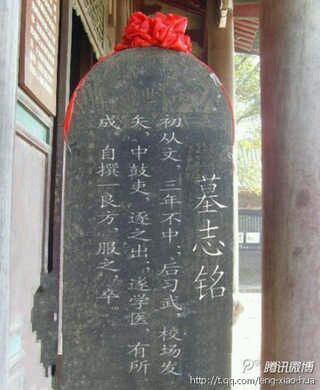 墓志铭
初从文，三年不中；后习武，校场发
矢，中鼓吏，逐之出；遂学医，有所
成，自撰一良方，服之，卒。
腾讯微博
http://t.qq.com/leng-xiao-hua